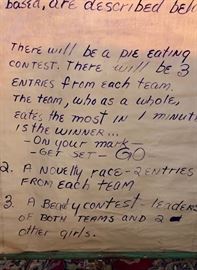 based, are described below
There will be a pie eating
contest. There will be 3
entries from each team.
The team, who as a whole,
eates the most in 1 minut
is the winner...
-On your mark-
-Get set- GO
2. A novelly race-2 entries
from each team
3. A Beauty contest-leaders
of both teams and 2
other girls.